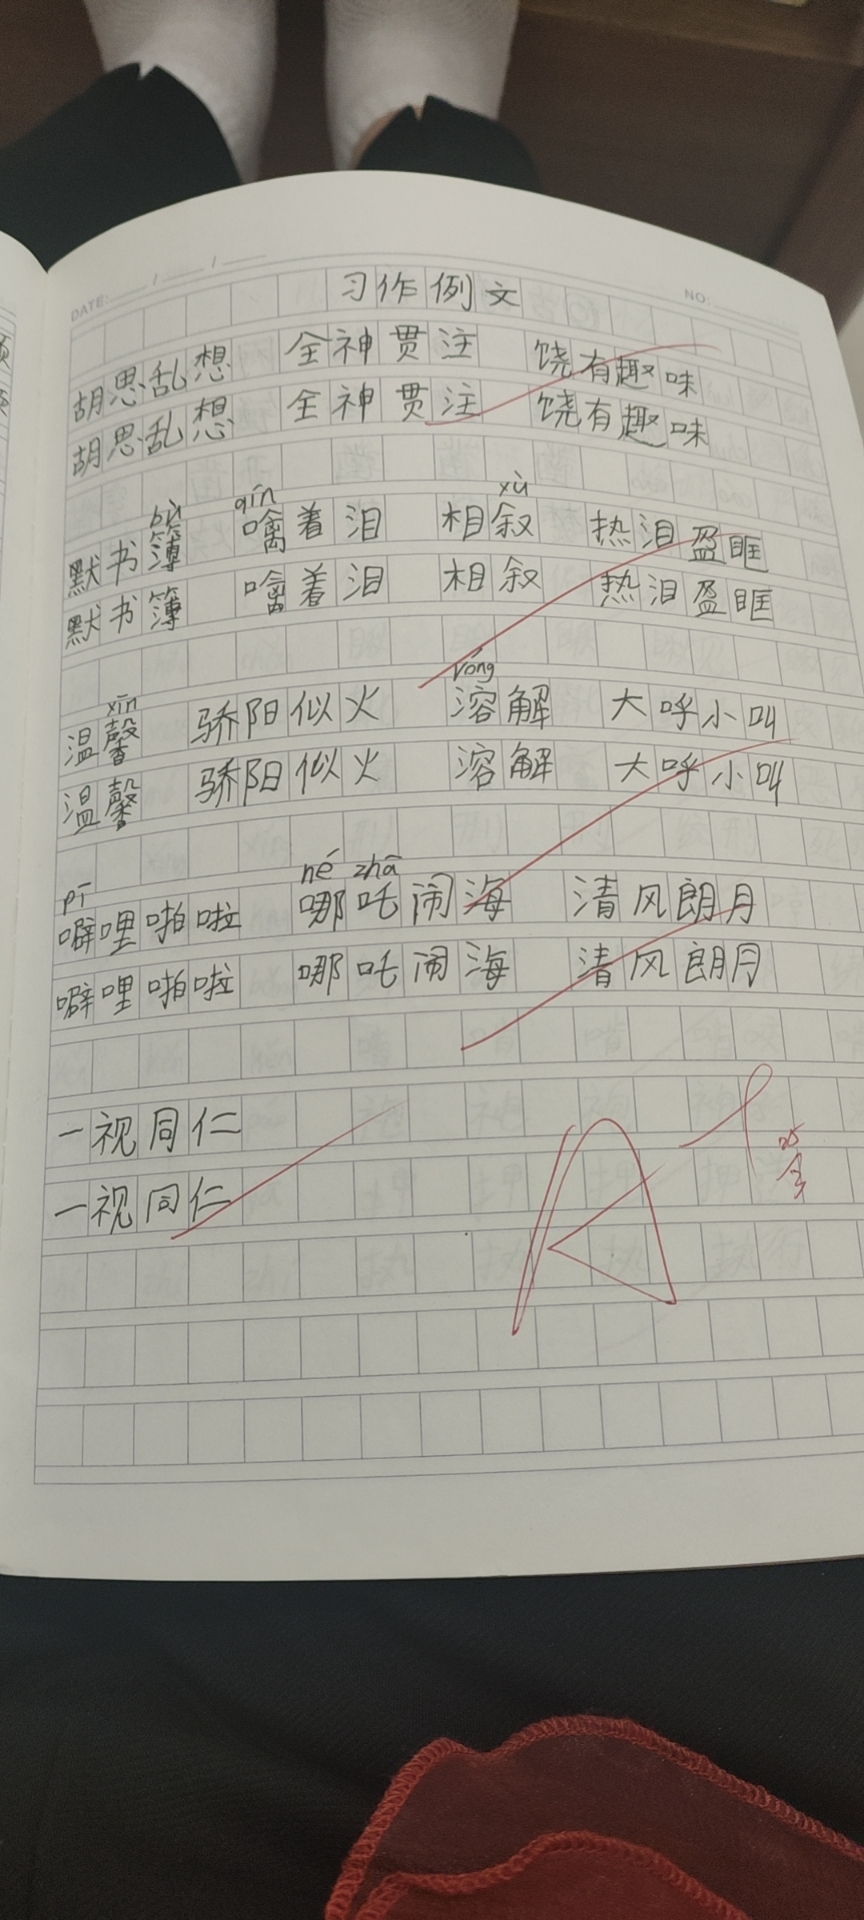 DATE: / /
NO:
习作例文
胡思乱想 全神贯注 饶有趣味
胡思乱想 全神贯注 饶有趣味
bù qín xù
默书簿 噙着泪 相叙 热泪盈眶
默书簿 噙着泪 相叙 热泪盈眶
xīn róng
温馨 骄阳似火 溶解 大呼小叫
温馨 骄阳似火 溶解 大呼小叫
pī né zhā
噼哩啪啦 哪吒闹海 清风朗月
噼哩啪啦 哪吒闹海 清风朗月
一视同仁
一视同仁
A